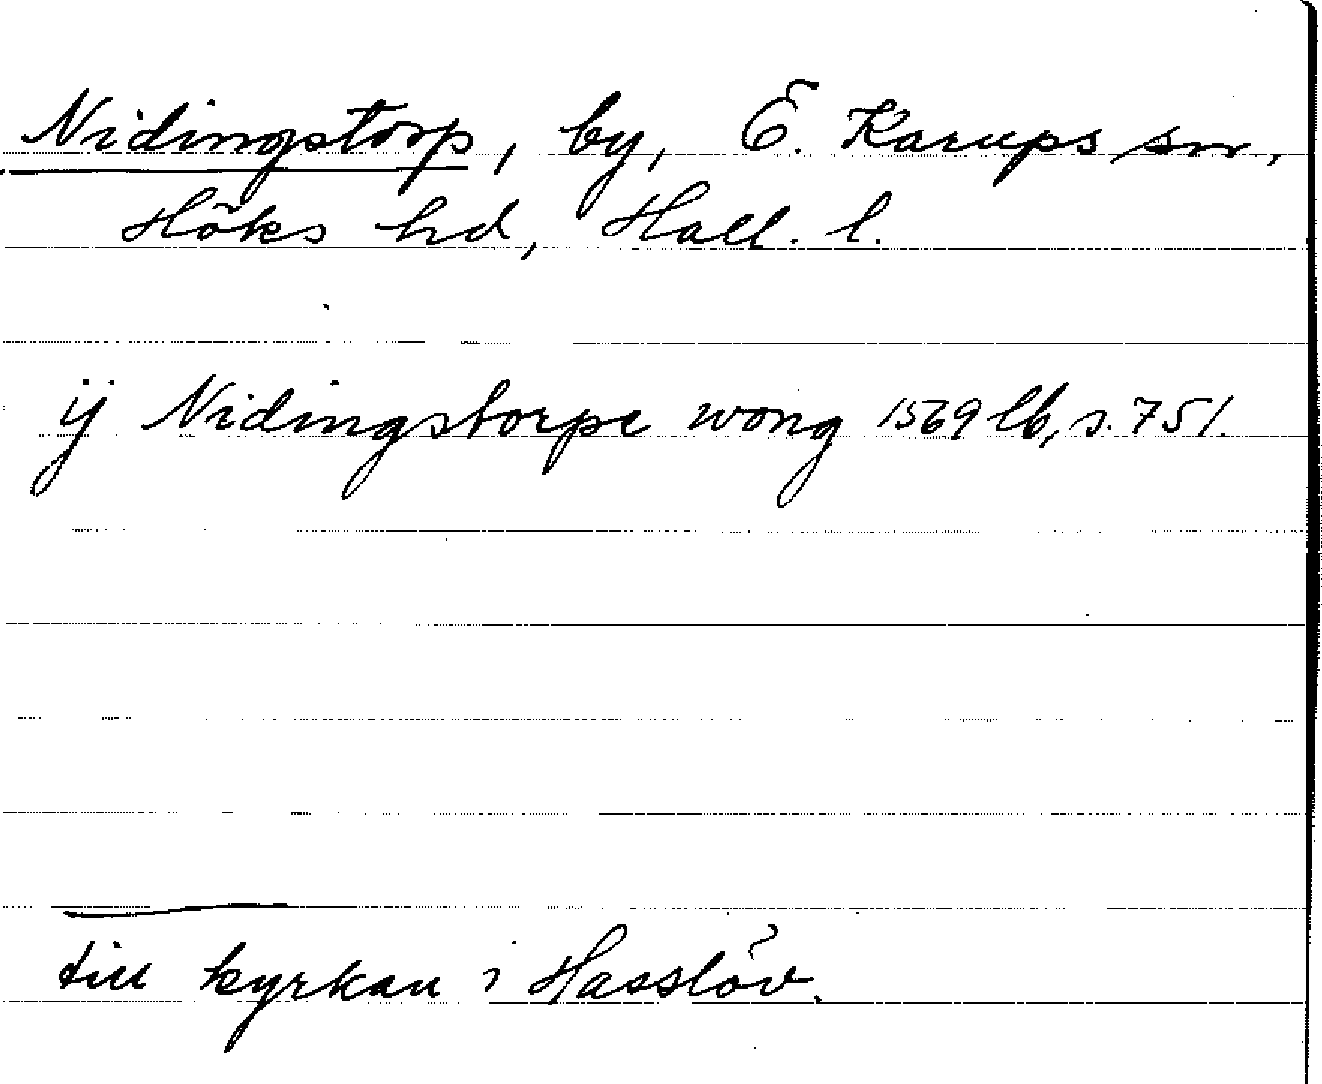 Nidingstorp, by, Ö. Karups sn,
Höks hd, Hall. l.
ij Nidingstorpe wong 1569 lb, s. 751.
till kyrkan i Hasslöv.